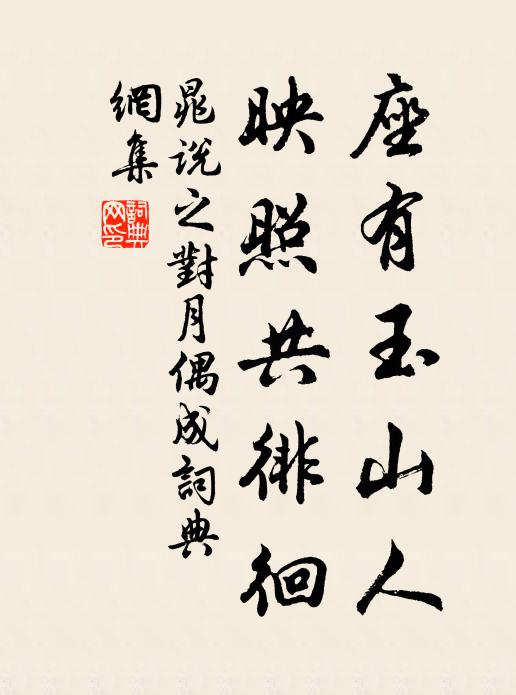 座有玉山人
映照共徘徊
晁說之對月偶成詞典
網集
詞典網印